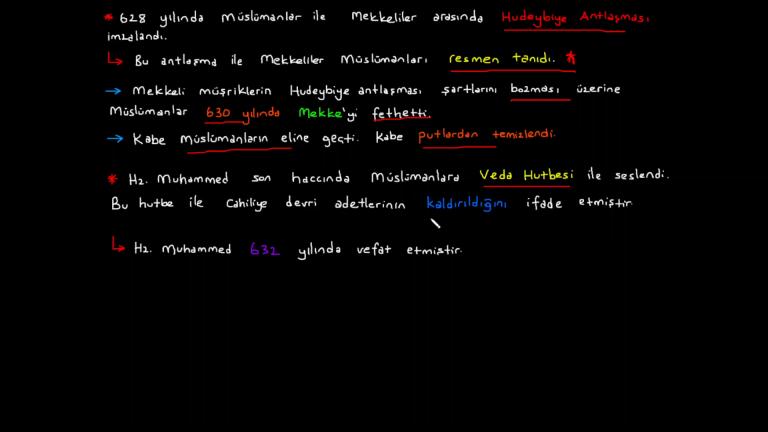 * 628 yılında Müslümanlar ile Mekkeliler arasında Hudeybiye Antlaşması
imzalandı.
↳ Bu antlaşma ile Mekkeliler Müslümanları resmen tanıdı. *
→ Mekkeli müşriklerin Hudeybiye antlaşması şartlarını bozması üzerine
Müslümanlar 630 yılında Mekke'yi fethetti.
→ Kabe müslümanların eline geçti. Kabe putlardan temizlendi.
* Hz. Muhammed son haccında Müslümanlara Veda Hutbesi ile seslendi.
Bu hutbe ile Cahiliye devri adetlerinin kaldırıldığını ifade etmiştir.
↳ Hz. Muhammed 632 yılında vefat etmiştir.